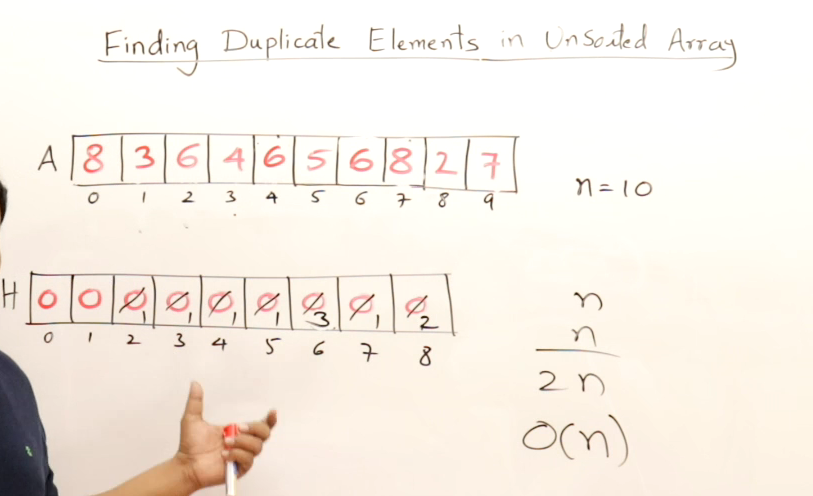 Finding Duplicate Elements in Unsorted Array
A 8 3 6 4 6 5 6 8 2 7
0 1 2 3 4 5 6 7 8 9
n=10
H 0 0 0 1 0 1 0 1 0 1 0 3 0 1 0 2
0 1 2 3 4 5 6 7 8
n
n
2n
O(n)